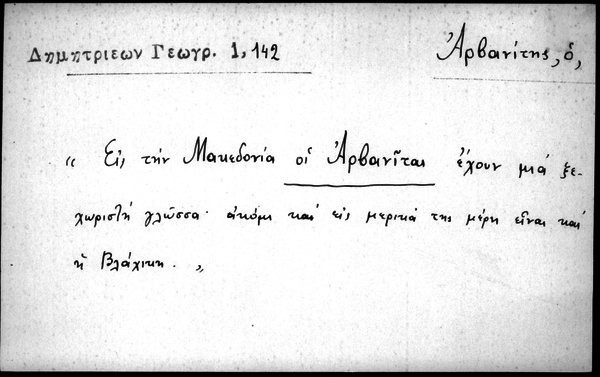 Δημητριεων Γεωγρ. 1, 142
Ἀρβανίτης, ὁ,
“ Εἰς τὴν Μακεδονία οἱ Ἀρβανῖται ἔχουν μιά ξε-
χωριστὴ γλῶσσα· ἀκόμι καὶ εἰς μερικά της μέρη εἶναι καὶ
ἡ Βλάχικη. „